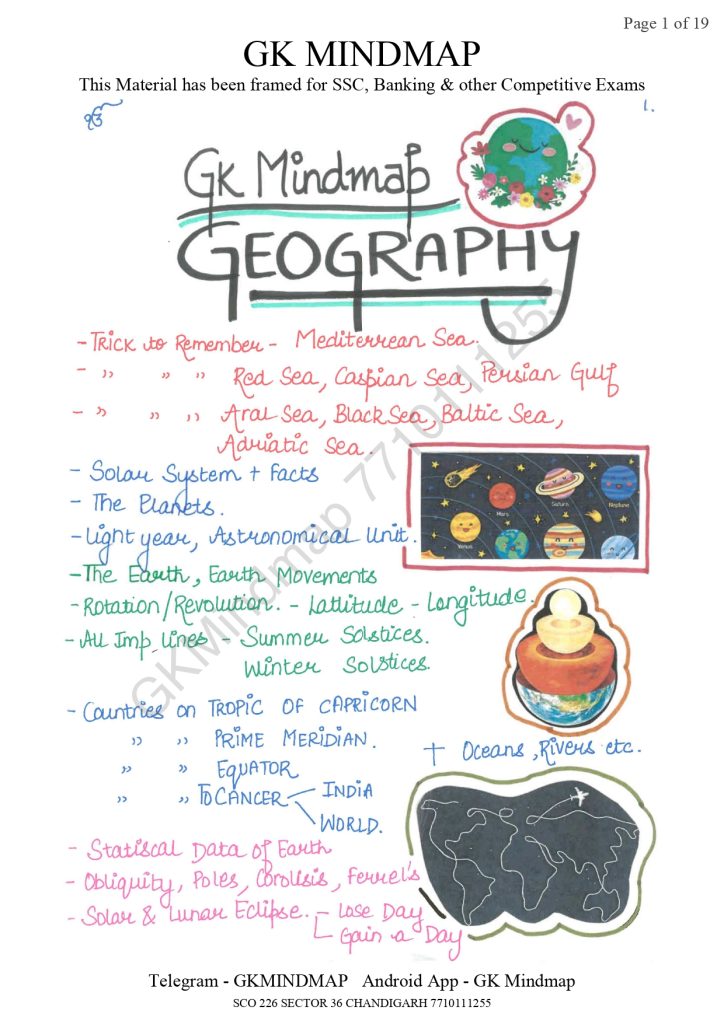 Page 1 of 19
GK MINDMAP
This Material has been framed for SSC, Banking & other Competitive Exams
ੴ
1.
Gk Mindmap
GEOGRAPHY
- Trick to Remember - Mediterrean Sea.
- " " " Red Sea, Caspian Sea, Persian Gulf
- " " " Aral Sea, Black Sea, Baltic Sea,
Adriatic Sea.
- Solar System + Facts
- The Planets.
- Light year, Astronomical Unit.
Mars
Saturn
Neptune
Venus
- The Earth, Earth Movements
- Rotation/Revolution. - Lattitude - Longitude.
- All Imp lines - Summer Solstices.
Winter Solstices.
- Countries on TROPIC OF CAPRICORN
" " PRIME MERIDIAN.
" " EQUATOR
" " TOCANCER - INDIA
WORLD.
+ Oceans, Rivers etc.
- Statiscal Data of Earth
- Obliquity, Poles, Corolisis, Ferrel's
- Solar & Lunar Eclipse. - Lose Day
Gain a Day
GKMindmap 7710111255
Telegram - GKMINDMAP Android App - GK Mindmap
SCO 226 SECTOR 36 CHANDIGARH 7710111255